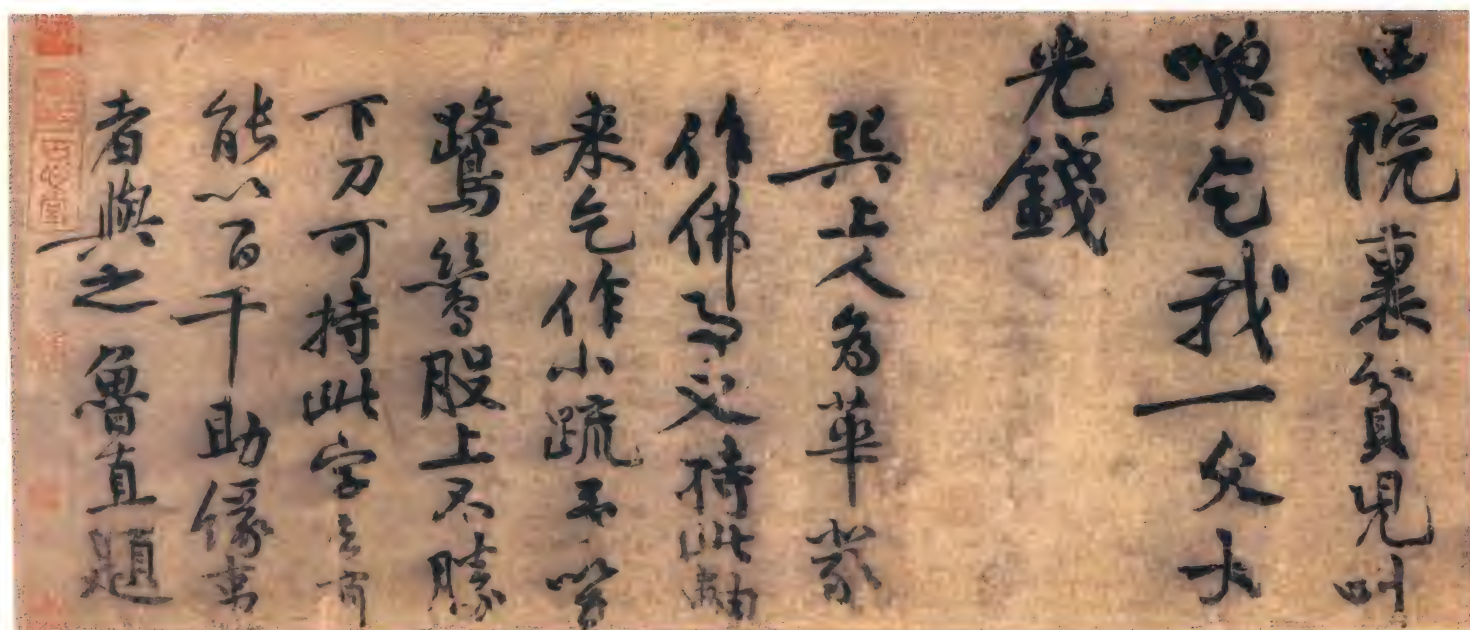 西院裏貧兒叫
喚乞我一文大
光錢
巽上人為華嚴
作佛事又持此軸
来乞作小疏予笑
鷺鷥股上不勝
下刀可持此字去有
能以百千助緣事
者與之 魯直題